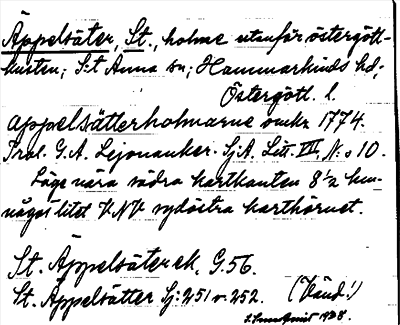 Äppelsäter, St., holme utanför östergötl-
kusten; S:t Anna sn; Hammarkinds hd,
Östergötl. l.
appelsätterholmarne omkr 1774.
G.A. Lejonanker. SjA. Litt. VII, N:o 10.
Läge nära södra kartkanten 8 1/2 km
något litet V.NV sydöstra karthörnet.
St. Äppelsäter ek. G.56.
St. Äppelsätter Sj: 251 o. 252. (Vänd!)
1928.